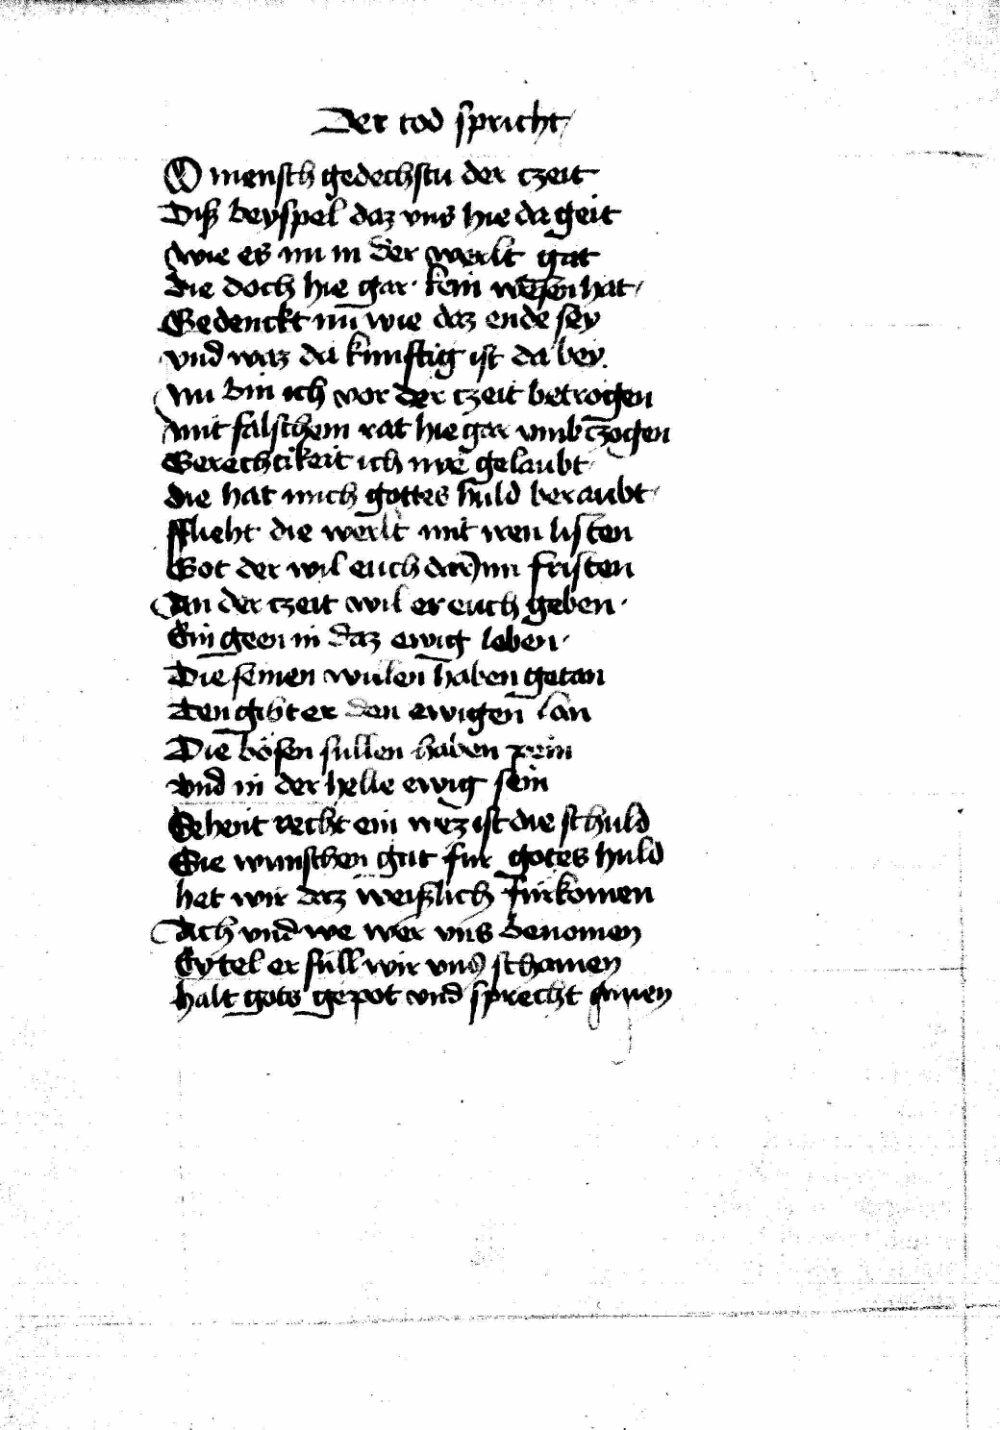 Der tod spricht
O mensch gedechstu der czeit
Diß beyspel daz vns hie da geit
wie es nu in der werlt gat
die doch hie gar kein wesen hat
Gedenckt nu wie daz ende sey
vnd waz da kunftig ist da bey.
Nu bin ich vor der czeit betrogen
mit falschem rat hie gar vmbczogen
Gerechtikeit ich nye gelaubt
die hat mich gottes huld beraubt
Flieht die werlt mit iren listen
Got der wil euch dar
fristen
An der czeit wil er euch geben
Ein geen in daz ewig leben
Die seinen willen haben getan
Den gibt er den ewigen lan
Die bösen sullen haben pein
vnd in der helle ewig sein
Sehent recht ein wez ist die schuld
Sie wunschen gut fur gotes huld
het wir daz weißlich furkomen
Ach vnd we wer vns benomen
Eytel er sull wir vns schamen
halt gots gepot vnd sprecht amen